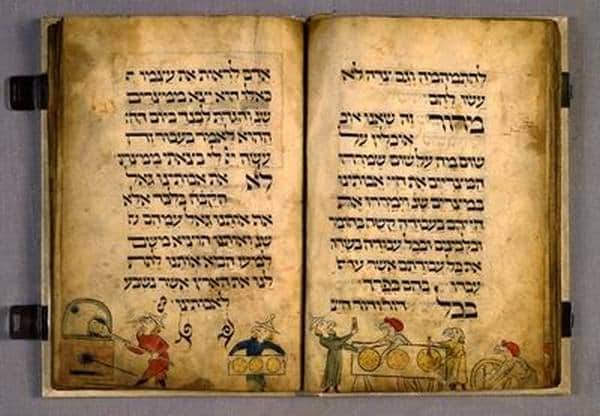 להתמהמה וגם צדה לא
עשו להם
מרור זה שאנו אוכ
אוכלין על
שום מה על שום שמררו
המצריים את חיי אבותינו
במצרים שנ וימררו את
חייהם בעבודה קשה בחומר
ובלבנים ובכל עבודה בשדה
את כל עבודתם אשר
עבדו בהם בפרך
בכל דור ודור חייב
אדם לראות את עצמו
כאלו הוא יצא ממצרים
שנ והגדת לבנך ביום ההו
ההוא לאמר בעבור זה
עשה לי בצאתי ממצרי
לא את אבותינו גאל
הקבה בלבד אלא
אף אותנו גאל עמהם ש
שנ ואותנו הוציא משם
למען הביא אותנו לתת
לנו את הארץ אשר נשבע
לאבותינו